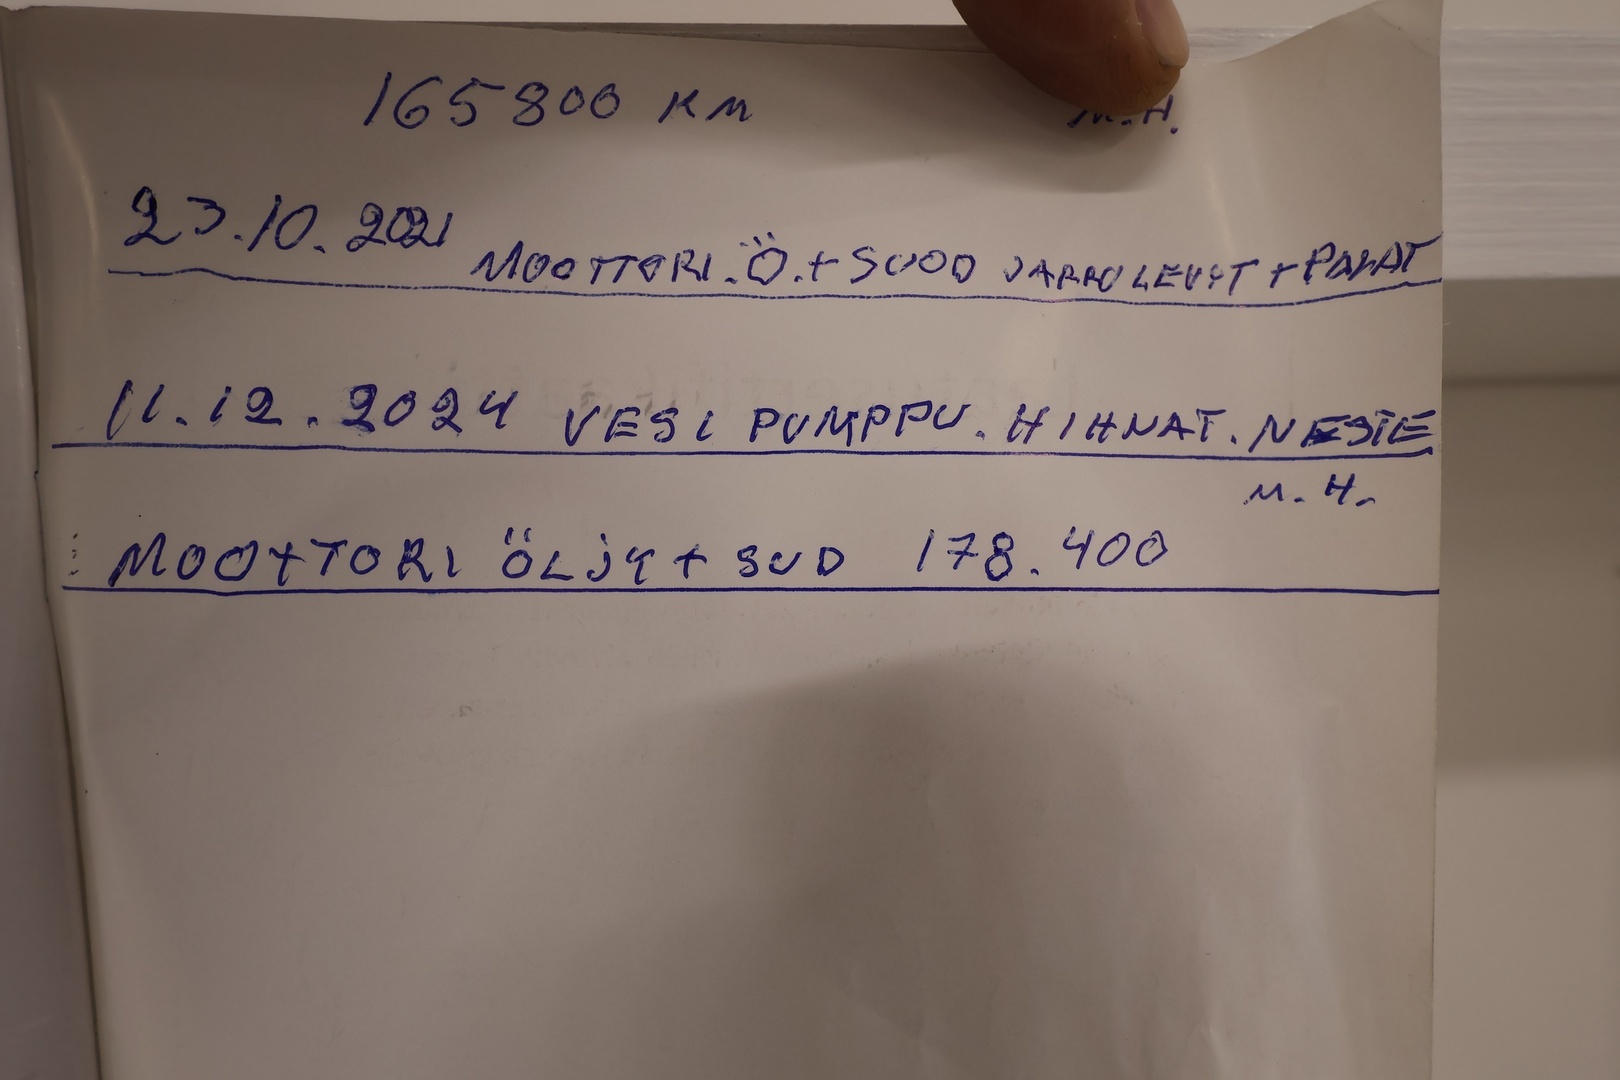 165800 KM M.H.
23.10.2021 MOOTTORI.Ö.+SUOD JARRULEVYT+PALAT
11.12.2024 VESI PUMPPU. HIHNAT. NESTE
M.H.
MOOTTORI ÖLJY+ SUD 178.400